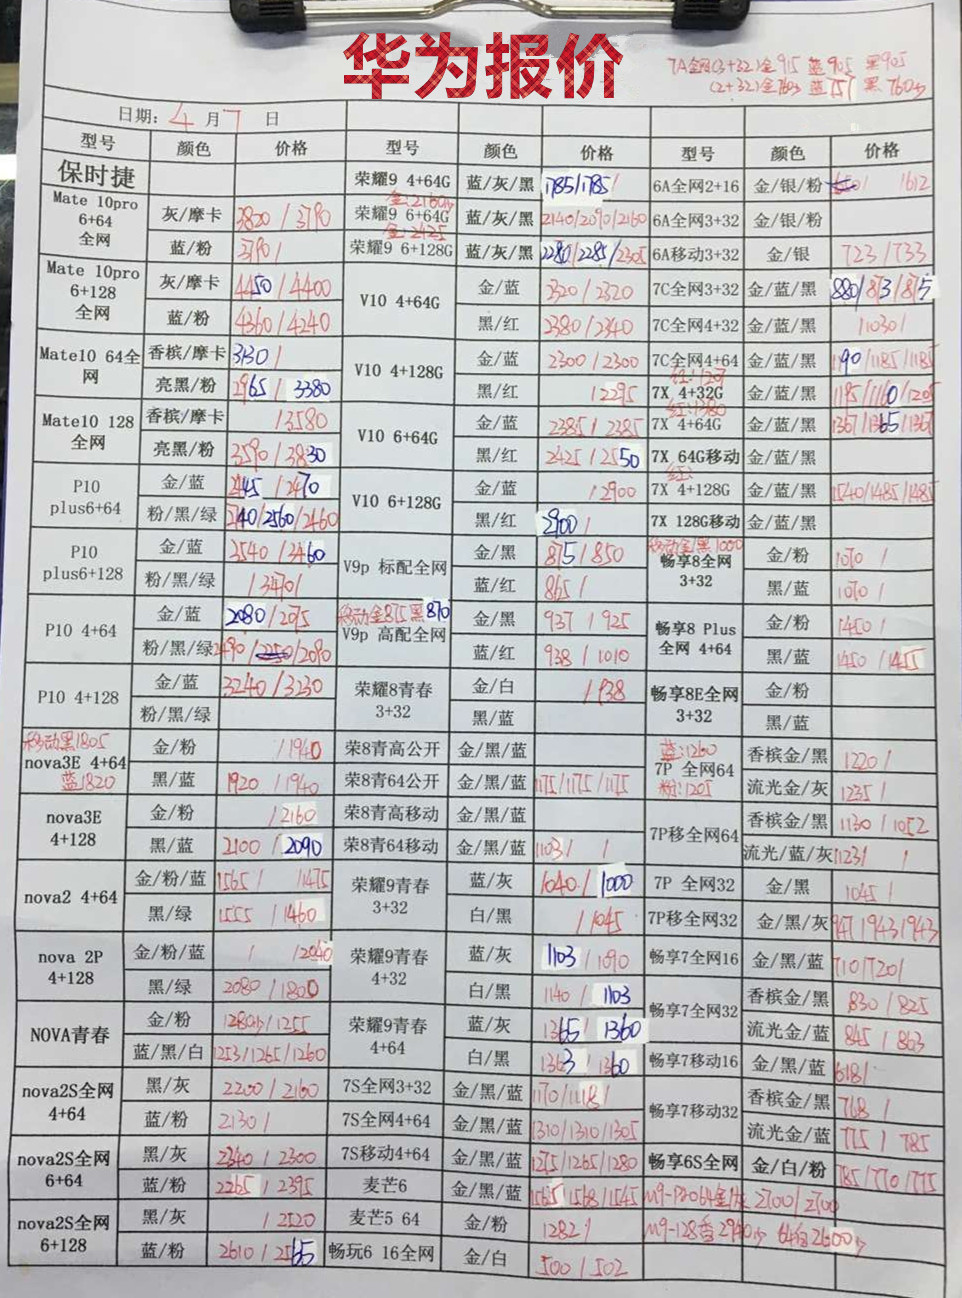 华为报价
7A全网(3+32)金915 蓝905 黑905
(2+32)金760 蓝757 黑760
日期: 4 月 7 日
型号 颜色 价格 型号 颜色 价格 型号 颜色 价格
保时捷 荣耀9 4+64G 蓝/灰/黑 1785/1785/ 6A全网2+16 金/银/粉 /1612
Mate 10pro 6+64 全网 灰/摩卡 3820/3790 荣耀9 6+64G 金:2160 蓝/灰/黑 2140/2090/2160 6A全网3+32 金/银/粉
蓝/粉 3790/ 荣耀9 6+128G 金:2425 蓝/灰/黑 2280/2285/2305 6A移动3+32 金/银 723/733
Mate 10pro 6+128 全网 灰/摩卡 4450/4400 V10 4+64G 金/蓝 2320/2320 7C全网3+32 金/蓝/黑 880/873/875
蓝/粉 4360/4240 黑/红 2380/2340 7C全网4+32 金/蓝/黑 /1030/
Mate10 64全网 香槟/摩卡 3130/ V10 4+128G 金/蓝 2300/2300 7C全网4+64 金/蓝/黑 1190/1185/1185
亮黑/粉 2965/3380 黑/红 /2295 7X 4+32G 红:1207 金/蓝/黑 1185/1160/1205
Mate10 128全网 香槟/摩卡 /3580 V10 6+64G 金/蓝 2385/2285 7X 4+64G 红:1380 金/蓝/黑 1367/1365/1367
亮黑/粉 3590/3830 黑/红 2425/2550 7X 64G移动 金/蓝/黑
P10 plus6+64 金/蓝 2445/2470 V10 6+128G 金/蓝 /2900 7X 4+128G 红: 金/蓝/黑 1540/1485/1485
粉/黑/绿 2140/2560/2460 黑/红 2900/ 7X 128G移动 金/蓝/黑
P10 plus6+128 金/蓝 3540/3460 V9p 标配全网 金/黑 875/850 移动金/黑1000 畅享8全网 3+32 金/粉 1070/
粉/黑/绿 /3470/ 蓝/红 865/ 黑/蓝 1070/
P10 4+64 金/蓝 2080/2075 移动金875黑870 V9p 高配全网 金/黑 937/925 畅享8 Plus 全网 4+64 金/粉 1450/
粉/黑/绿 2490/2250/2090 蓝/红 938/1010 黑/蓝 1450/1455
P10 4+128 金/蓝 3240/3230 荣耀8青春 3+32 金/白 /938 畅享8E全网 3+32 金/粉
粉/黑/绿 黑/蓝 黑/蓝
移动黑1805 nova3E 4+64 蓝1820 金/粉 /1940 荣8青高公开 金/黑/蓝 蓝:1260 7P 全网64 粉:1205 香槟金/黑 1220/
黑/蓝 1920/1940 荣8青64公开 金/黑/蓝 1175/1175/1175 流光金/灰 1235/
nova3E 4+128 金/粉 /2160 荣8青高移动 金/黑/蓝 7P移全网64 香槟金/黑 1130/1052
黑/蓝 2100/2090 荣8青64移动 金/黑/蓝 1103/ / 流光/蓝/灰 1123/ /
nova2 4+64 金/粉/蓝 1565/ /1475 荣耀9青春 3+32 蓝/灰 1040/1000 7P 全网32 金/黑 1045/
黑/绿 1555/1460 白/黑 /1045 7P移全网32 金/黑/灰 947/943/943
nova 2P 4+128 金/粉/蓝 / /2040 荣耀9青春 4+32 蓝/灰 1103/1090 畅享7全网16 金/黑/蓝 710/720/
黑/绿 2080/1800 白/黑 1140/1103 畅享7全网32 香槟金/黑 830/825
NOVA青春 金/粉 1280/1255 荣耀9青春 4+64 蓝/灰 1365/1360 流光金/蓝 845/863
蓝/黑/白 1253/1265/1260 白/黑 1363/1360 畅享7移动16 金/黑/蓝 618/
nova2S全网 4+64 黑/灰 2200/2160 7S全网3+32 金/黑/蓝 1170/1118/ 畅享7移动32 香槟金/黑 768/
蓝/粉 2130/ 7S全网4+64 金/黑/蓝 1310/1310/1305 流光金/蓝 775/785
nova2S全网 6+64 黑/灰 2340/2300 7S移动4+64 金/黑/蓝 1275/1265/1280 畅享6S全网 金/白/粉 785/770/775
蓝/粉 2265/2395 麦芒6 金/黑/蓝 1565/1568/1545 M9-Pro64金/灰 2700/2700
nova2S全网 6+128 黑/灰 /2520 麦芒5 64 金/粉 1282/ M9-128香2940 64香2600
蓝/粉 2610/2565 畅玩6 16全网 金/白 500/502